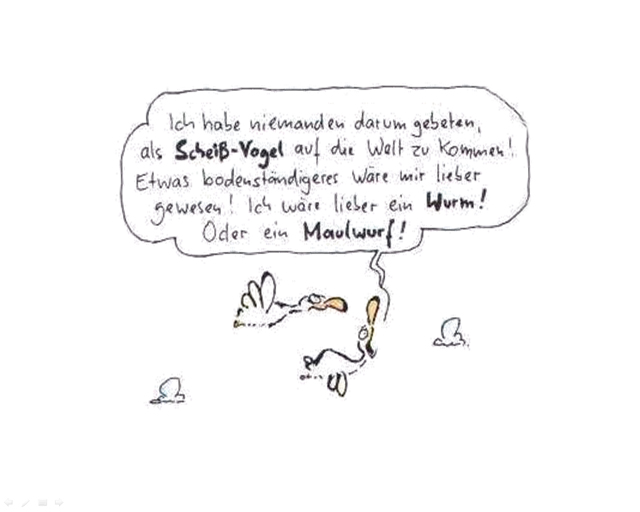 Ich habe niemanden darum gebeten,
als Scheiß-Vogel auf die Welt zu kommen!
Etwas bodenständigeres wäre mir lieber
gewesen! Ich wäre lieber ein Wurm!
Oder ein Maulwurf!